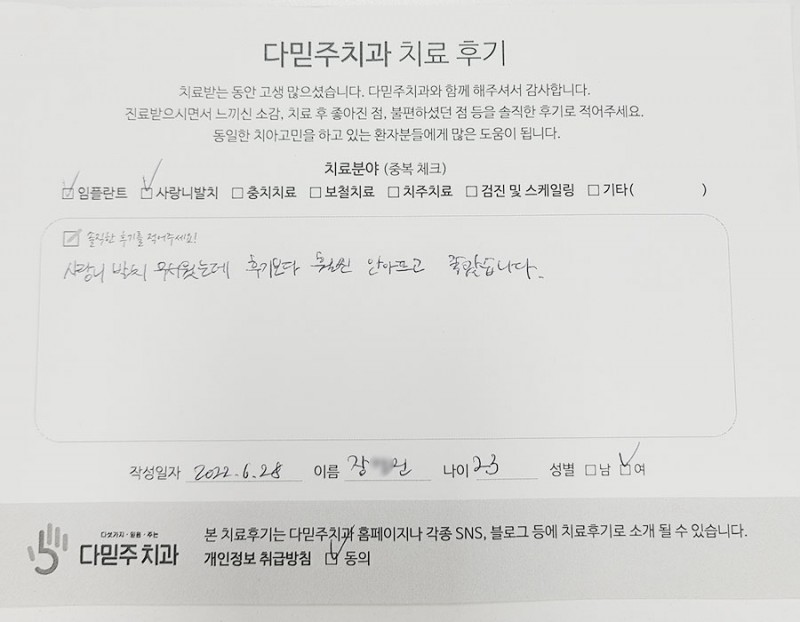 다믿주치과 치료 후기
치료받는 동안 고생 많으셨습니다. 다믿주치과와 함께 해주셔서 감사합니다.
진료받으시면서 느끼신 소감, 치료 후 좋아진 점, 불편하셨던 점 등을 솔직한 후기로 적어주세요.
동일한 치아고민을 하고 있는 환자분들에게 많은 도움이 됩니다.
치료분야 (중복 체크)
임플란트 사랑니발치 충치치료 보철치료 치주치료 검진 및 스케일링 기타( )
솔직한 후기를 적어주세요!
사랑니 발치 무서웠는데 후기보다 훨씬 안아프고 좋았습니다.
작성일자 2022.6.28 이름 장 건 나이 23 성별 남 여
다섯가지·믿음·주는
다믿주치과
본 치료후기는 다믿주치과 홈페이지나 각종 SNS, 블로그 등에 치료후기로 소개 될 수 있습니다.
개인정보 취급방침 동의